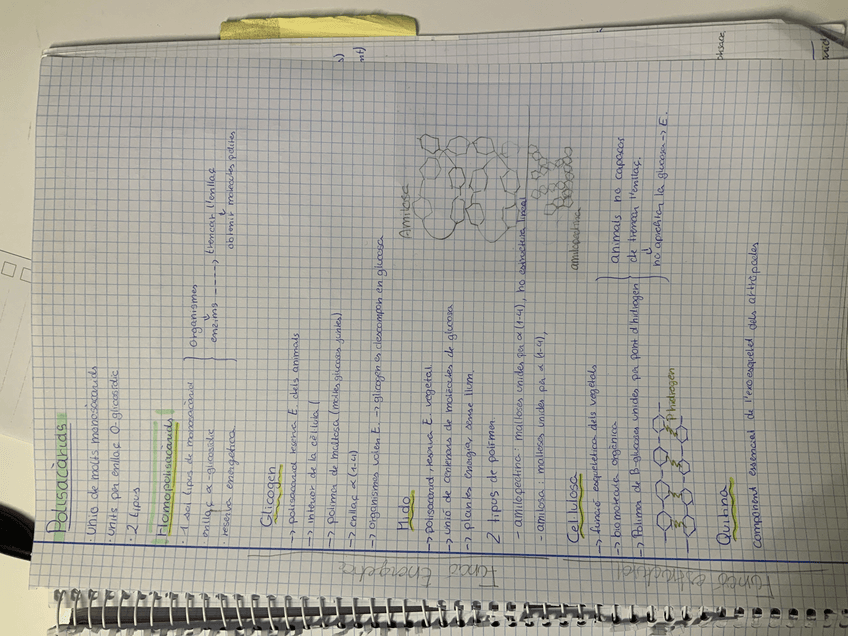 Polisacàrids
· Unió de molts monosacàrids
· units per enllaç O-glicosídic
· 2 tipus
Homopolisacàrids
· 1 sol tipus de monosacàrid
· enllaç α-glicosídic
reserva energètica
organismes
↓
enzims ----→ trencar l'enllaç
↓
obtenir molècules petites
Glicogen
→ polisacàrid reserva E. dels animals
→ interior de la cèl·lula
→ polímer de maltosa (moltes glucoses juntes)
→ enllaç α(1-4)
→ organismes volen E. → glicogen es descompon en glucosa
Midó
→ polisacàrid reserva E. vegetal
→ unió de centenars de molècules de glucosa
→ plantes energia sense llum.
2 tipus de polímer
- amilopectina: maltoses unides per α(1-4), no estructura lineal
- amilosa maltoses unides per α (1-4),
Amilosa
amilopectina
Cellulosa
→ funció esquelètica dels vegetals
→ biomolècula orgànica
→ Polímer de B-glucoses unides per pont d'hidrogen
animals no capaços
de trencar l'enllaç.
↓
no aprofiten la glucosa → E.
P hidrogen
Quitina
component essencial de l'exoesquelet dels artròpodes
Funció Energètica
Funció estructural